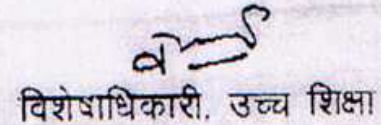 विशेषाधिकारी. उच्च शिक्षा